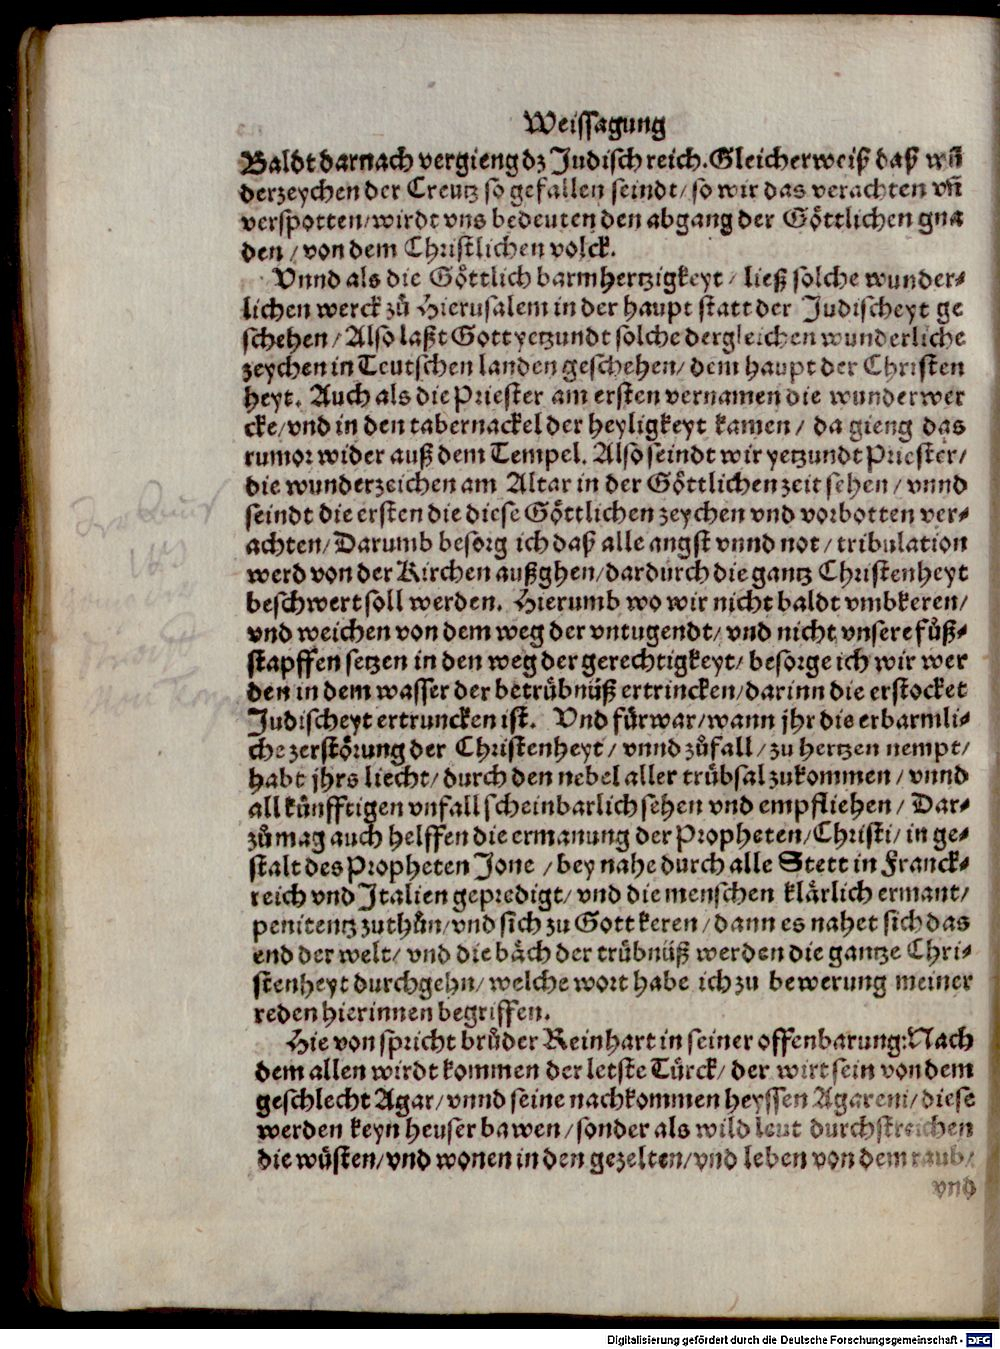 Weissagung
Baldt darnach vergieng dz Judisch reich. Gleicherweiß daß wū
derzeychen der Creutz so gefallen seindt / so wir das verachten vñ
verspotten / wirdt vns bedeuten den abgang der Göttlichen gna
den / von dem Christlichen volck.
Vnnd als die Göttlich barmhertzigkeyt / ließ solche wunder-
lichen werck zů Hierusalem in der haupt statt der Judischeyt ge
schehen / Also laßt Gott yetzundt solche dergleichen wunderliche
zeychen in Teutschen landen geschehen / dem haupt der Christen
heyt. Auch als die Priester am ersten vernamen die wunderwer
cke / vnd in den tabernackel der heyligkeyt kamen / da gieng das
rumor wider auß dem Tempel. Also seindt wir yetzundt Priester /
die wunderzeichen am Altar in der Göttlichen zeit sehen / vnnd
seindt die ersten die diese Göttlichen zeychen vnd vorbotten ver-
achten / Darumb besorg ich daß alle angst vnnd not / tribulation
werd von der Kirchen außghen / dardurch die gantz Christenheyt
beschwert soll werden. Hierumb wo wir nicht baldt vmbkeren /
vnd weichen von dem weg der vntugendt / vnd nicht vnsere fůß-
stapffen setzen in den weg der gerechtigkeyt / besorge ich wir wer
den in dem wasser der betrübnüß ertrincken / darinn die erstocket
Judischeyt ertruncken ist. Vnd fürwar / wann jhr die erbarmli-
che zerstörung der Christenheyt / vnnd zůfall / zu hertzen nempt /
habt jhrs liecht / durch den nebel aller trübsal zukommen / vnnd
all künfftigen vnfall scheinbarlich sehen vnd empfliehen / Dar-
zů mag auch helffen die ermanung der Propheten / Christi / in ge-
stalt des Propheten Jone / bey nahe durch alle Stett in Franck-
reich vnd Italien gepredigt / vnd die menschen klärlich ermant /
penitentz zuthůn / vnd sich zu Gott keren / dann es nahet sich das
end der welt / vnd die bäch der trübnüß werden die gantze Chri-
stenheyt durchgehn / welche wort habe ich zu bewerung meiner
reden hierinnen begriffen.
Hie von spricht brůder Reinhart in seiner offenbarung: Nach
dem allen wirdt kommen der letste Türck / der wirt sein von dem
geschlecht Agar / vnnd seine nachkommen heyssen Agareni / diese
werden keyn heuser bawen / sonder als wild leut durchstreichen
die wůsten / vnd wonen in den gezelten / vnd leben von dem raub /
vnd
Digitalisierung gefördert durch die Deutsche Forschungsgemeinschaft - DFG